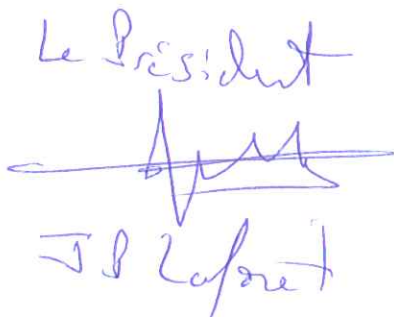 Le Président
J P Laforet